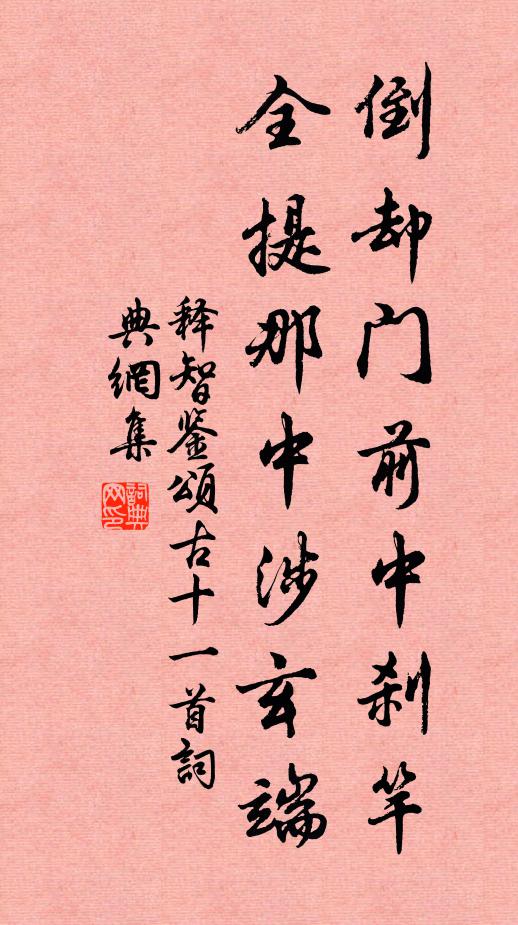 倒却门前中刹竿
全提那中涉玄端
释智鉴颂古十一首詞
典網集
詞典
网印